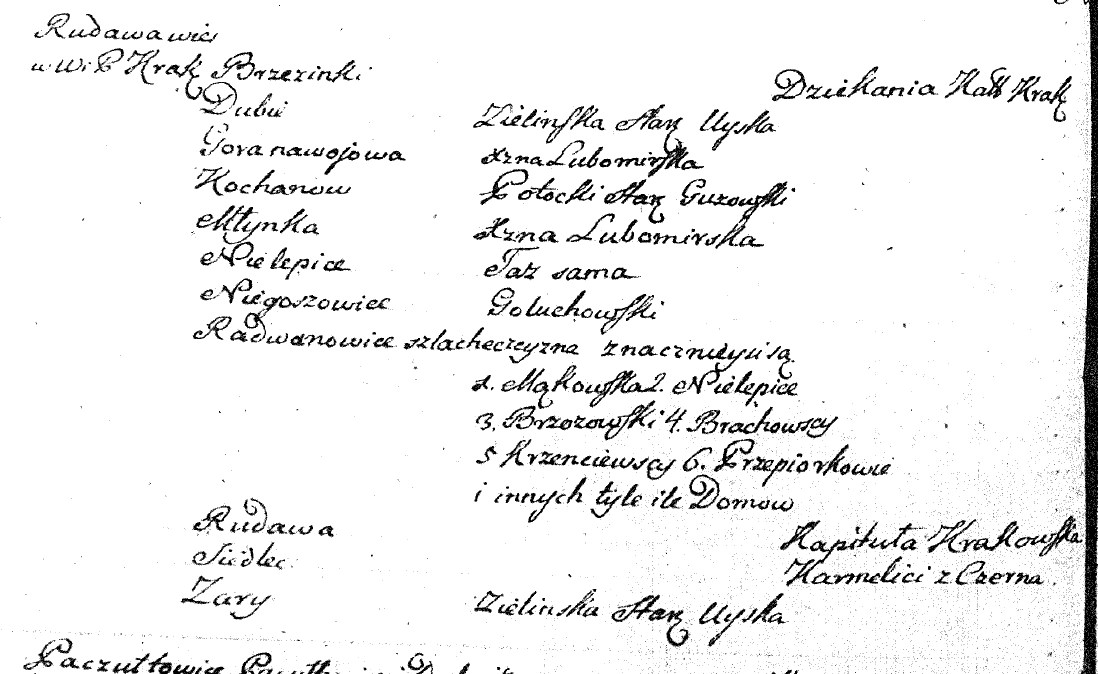 Rudawa wieś
w Wi P Krak Brzezinki Dziekania Katt Krak
Dubie Zielinska Star Uyska
Gora nawojowa Xzna Lubomirska
Kochanow Potocki Star Guzowski
Młynka Xzna Lubomirska
Nielepice Taz sama
Niegoszowice Goluchowski
Radwanowice szlacheczyzna znacznieysi są
1. Mąkowska 2. Nielepice
3. Brzozowski 4. Brachowscy
5 Krzenciewscy 6. Przepiorkowie
i innych tyle ile Domow
Rudawa Kapituła Krakowska
Siedlec Karmelici z Czerna.
Zary Zielinska Star Uyska
Paczułtowice